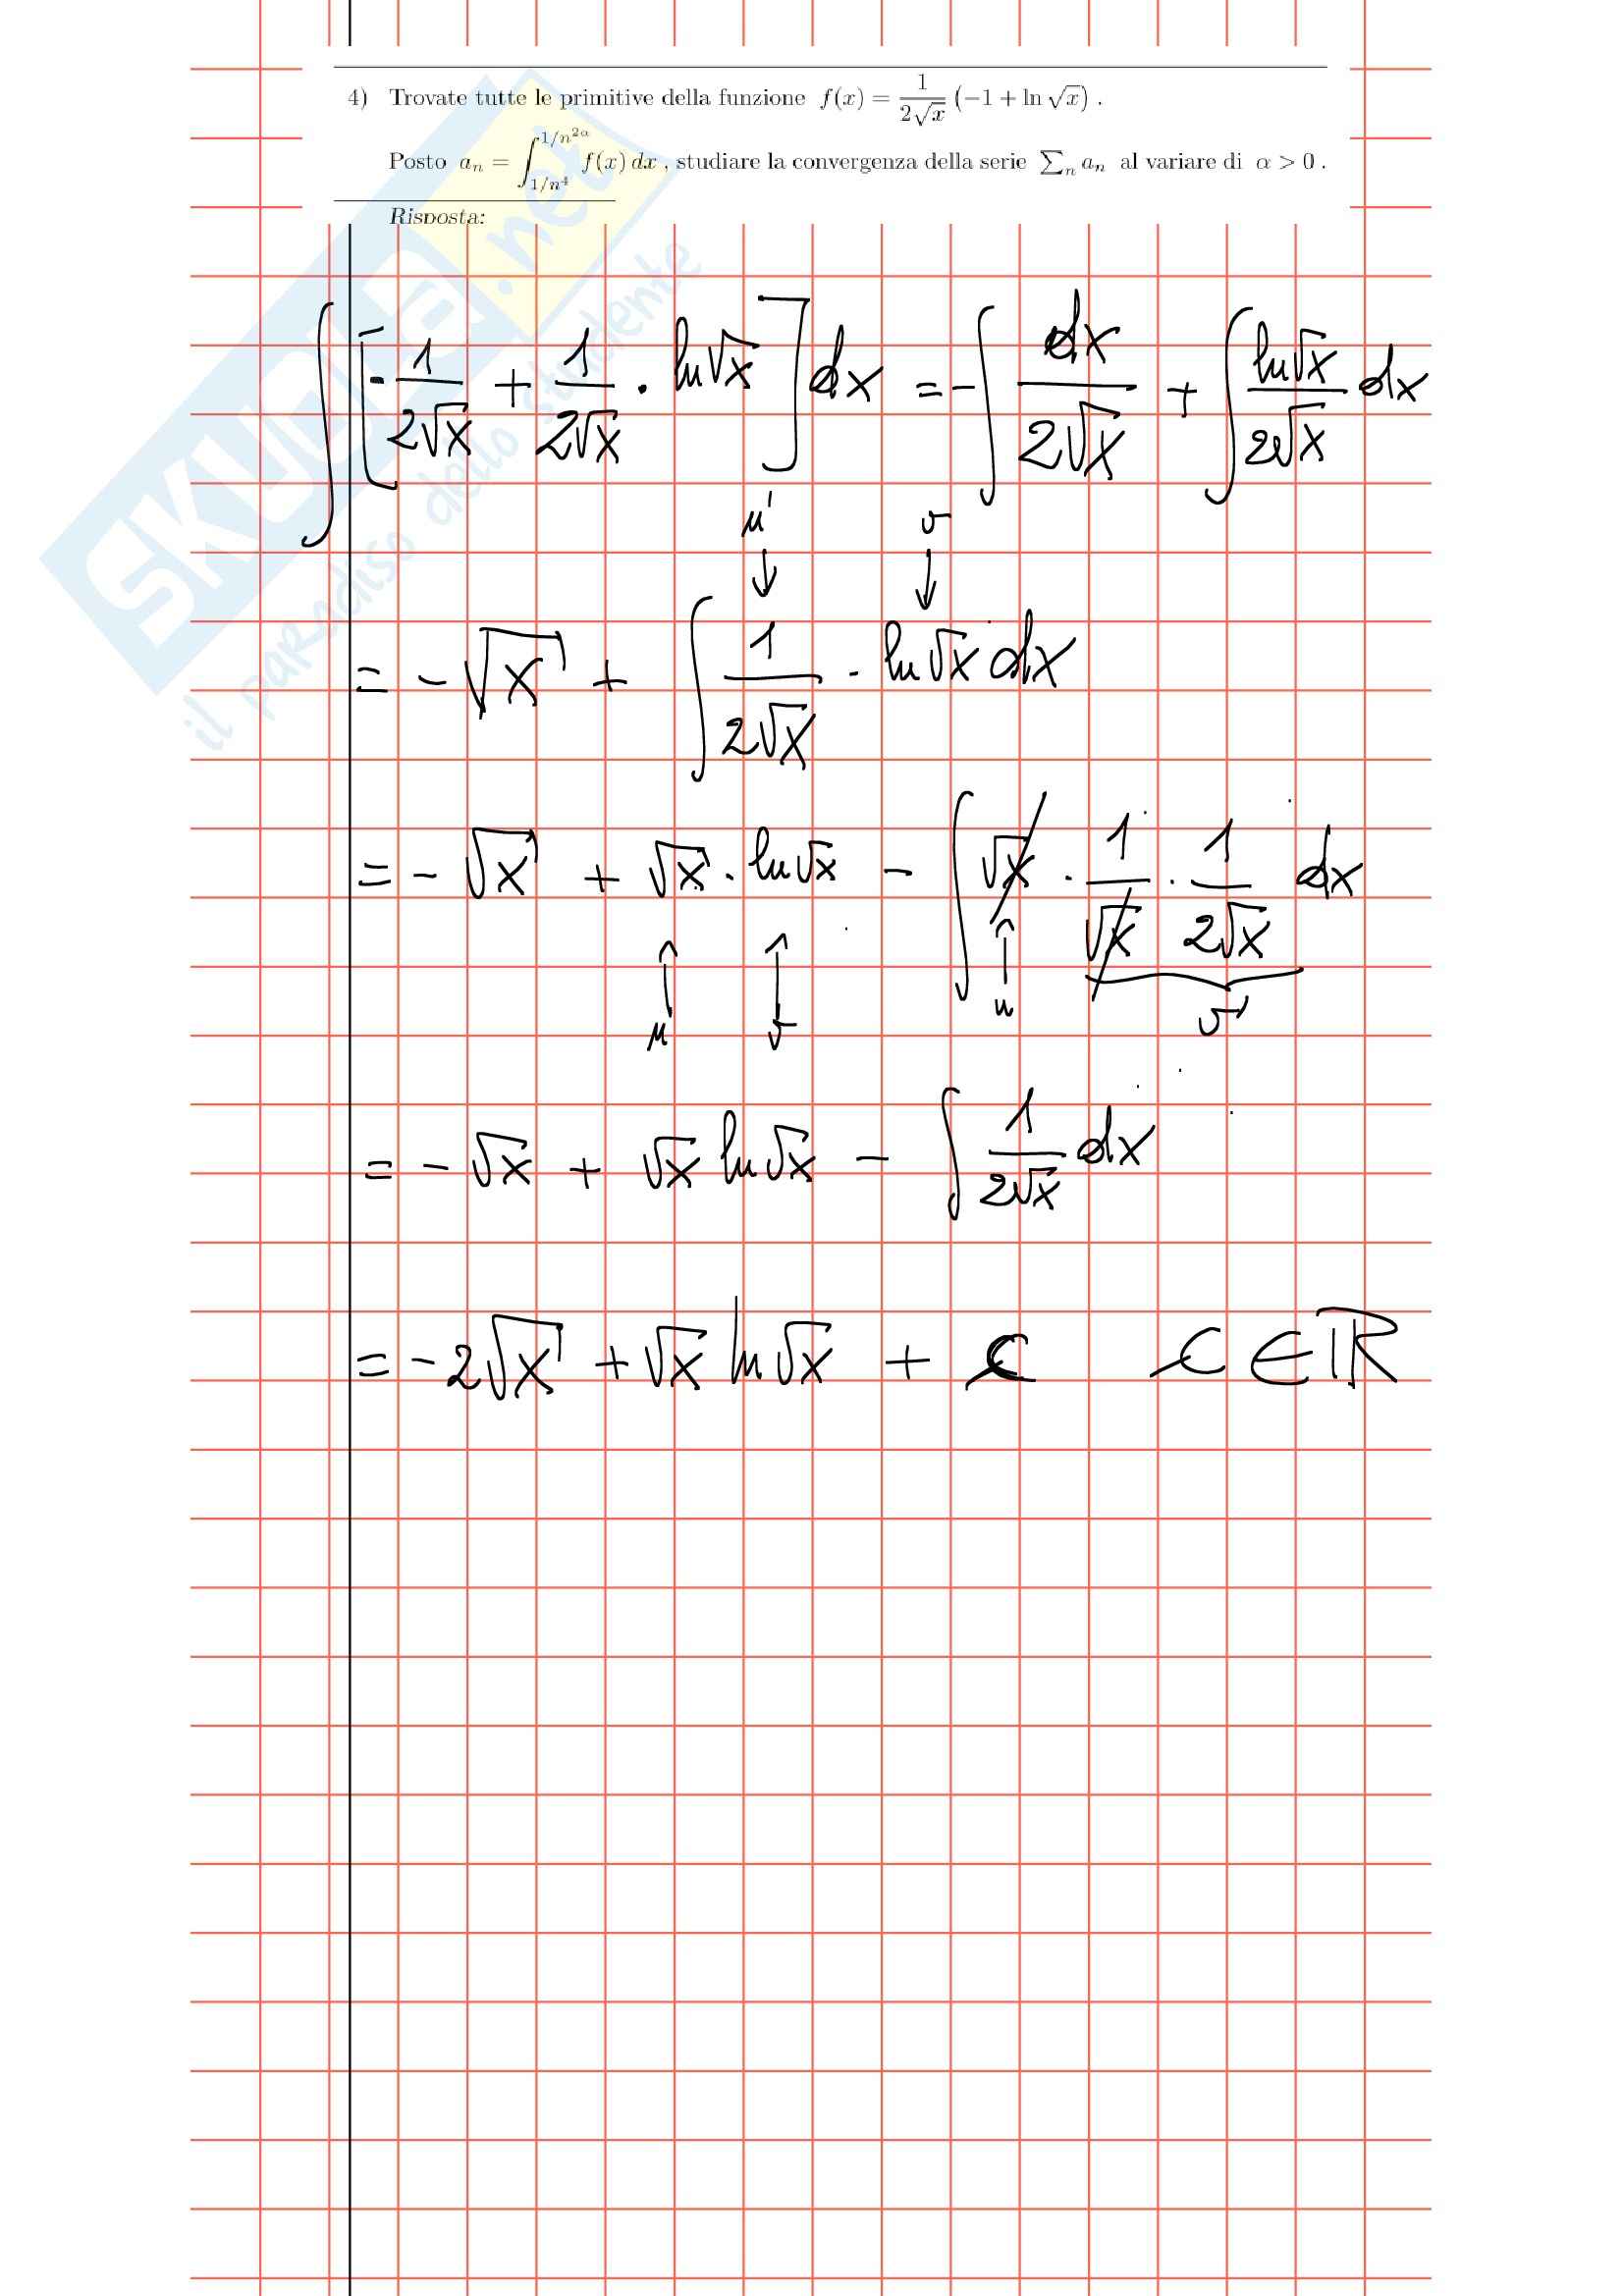 4) Trovate tutte le primitive della funzione f(x) = 1/(2√x) (−1 + ln √x) .
Posto aₙ = ∫_{1/n⁴}^{1/n^{2α}} f(x) dx , studiare la convergenza della serie ∑ₙ aₙ al variare di α > 0 .
Risposta:
SKUOLA.net
il paradiso dello studente
∫ [-1/(2√x) + 1/(2√x) · ln√x] dx = -∫ dx/(2√x) + ∫ ln√x/(2√x) dx
u' v
↓ ↓
= -√x + ∫ 1/(2√x) · ln√x dx
= -√x + √x · ln√x - ∫ √x · 1/√x · 1/(2√x) dx
↑ ↑ ↑
u v u v'
= -√x + √x ln√x - ∫ 1/(2√x) dx
= -2√x + √x ln√x + C C ∈ ℝ